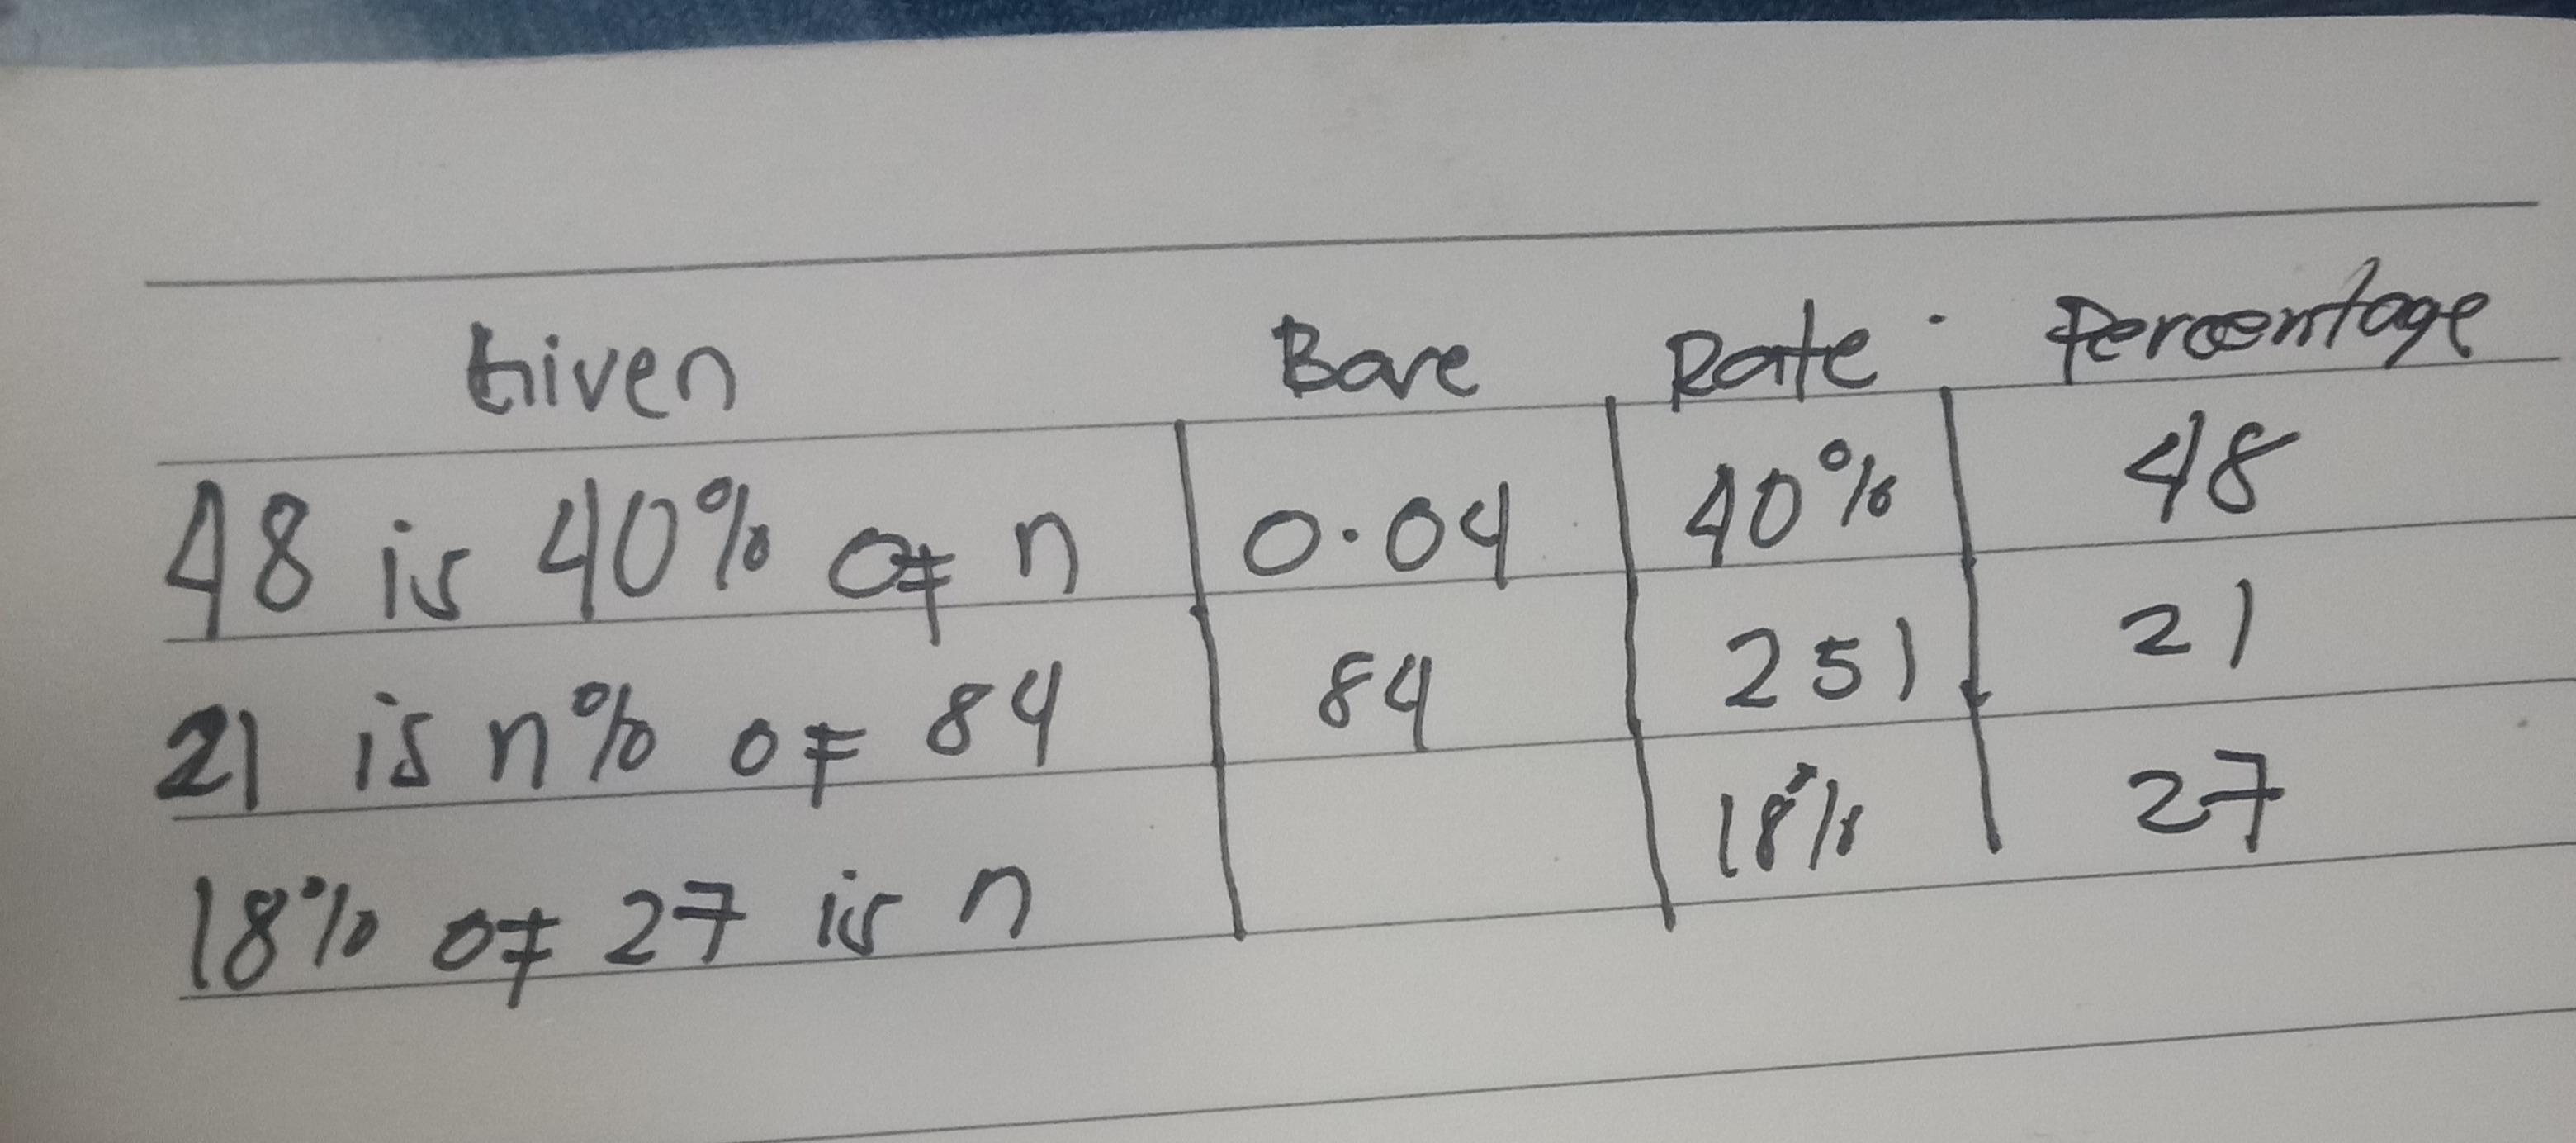 Given Base Rate Percentage
48 is 40% of n 0.04 40% 48
21 is n% of 84 84 251 21
18% of 27 is n 18% 27